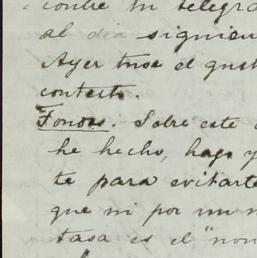 contré tu telegra
al dia siguien
Ayer tuve el gust
contesto.
Fondos. Sobre este
he hecho, hago y
te para evitarte
que ni por un m
tasa es el "non